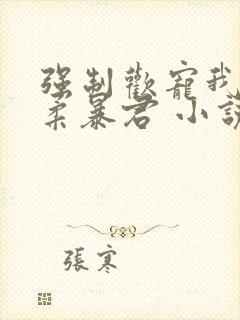 强制歡寵我
柔暴君 小說
張寒